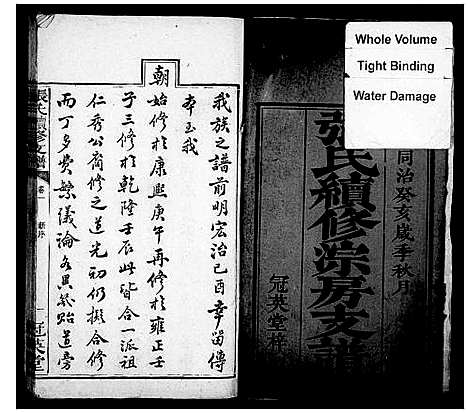 Whole Volume
Tight Binding
Water Damage
同治癸亥歲季秋月
張氏續修漴房支譜
冠英堂梓
我族之譜前明宏治己酉幸留傳
本至我
朝
始修於康熙庚午再修於雍正壬
子三修於乾隆壬辰此皆合一派祖
仁秀公裔修之道光初仍擬合修
而丁多費繁議論各異幾貽道旁
張氏續修支譜
卷一
新序
一
冠英堂